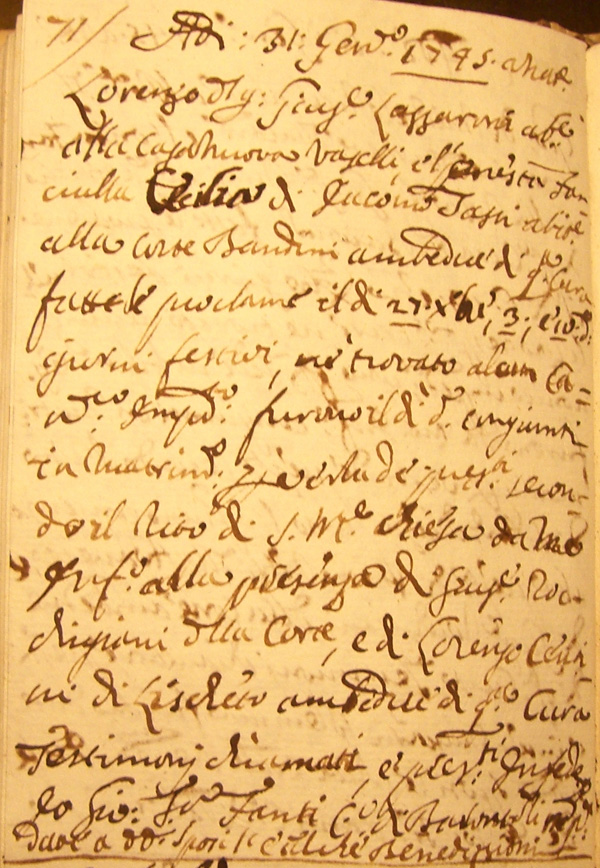 71/ Adi: 31: Genº: 1745. a Nat.
Lorenzo d'g: Giusᵉ Lazzaroni abᵉ
alla Casa Nuova Vaselli, e l'onesta Fan
ciulla Cecilia di Giacomo Tassi abitᵉ
alla Corte Bandini ambedue di qᵗᵃ Cura
fattesi le proclame il di 27: Xbre, 3; e 10 dº:
giorni festivi, ne trovato alcun Ca=
nᶜᵒ Impᵗᵒ: furono il di dº. congiunti
in Matrimº: per verba de presᵗⁱ secon=
do il Rito di S. Mᵉ Chiesa da me
Infº. alla presenza di Giusᵉ Roc=
chigiani della Corte, e di Lorenzo Cecci
ni di Lischeto ambedue di qᵗᵃ Cura
Testimonj chiamati, e presᵗⁱ. In fede
Io Gio: Fanti
Dati a dd. Sposi le Benedizioni